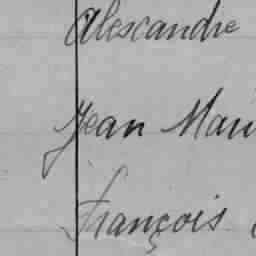 Alescandre
Jean Mau
François